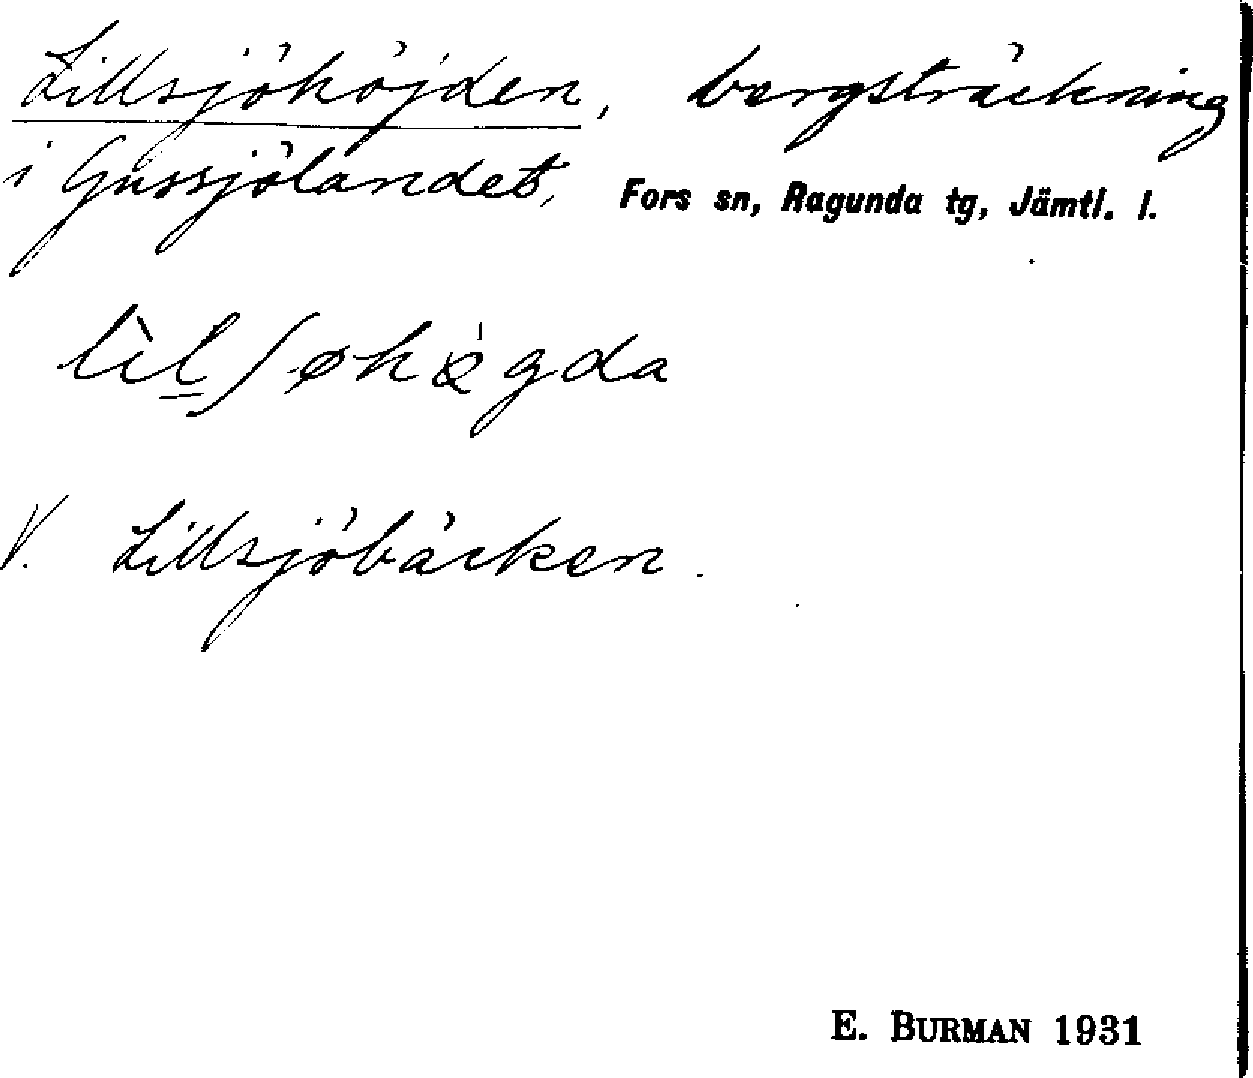 Lillsjöhöjden, bergsträckning
i Gussjölandet, Fors sn, Ragunda tg, Jämtl. l.
lìlʃøhø̀gda
V. Lillsjöbäcken.
E. BURMAN 1931